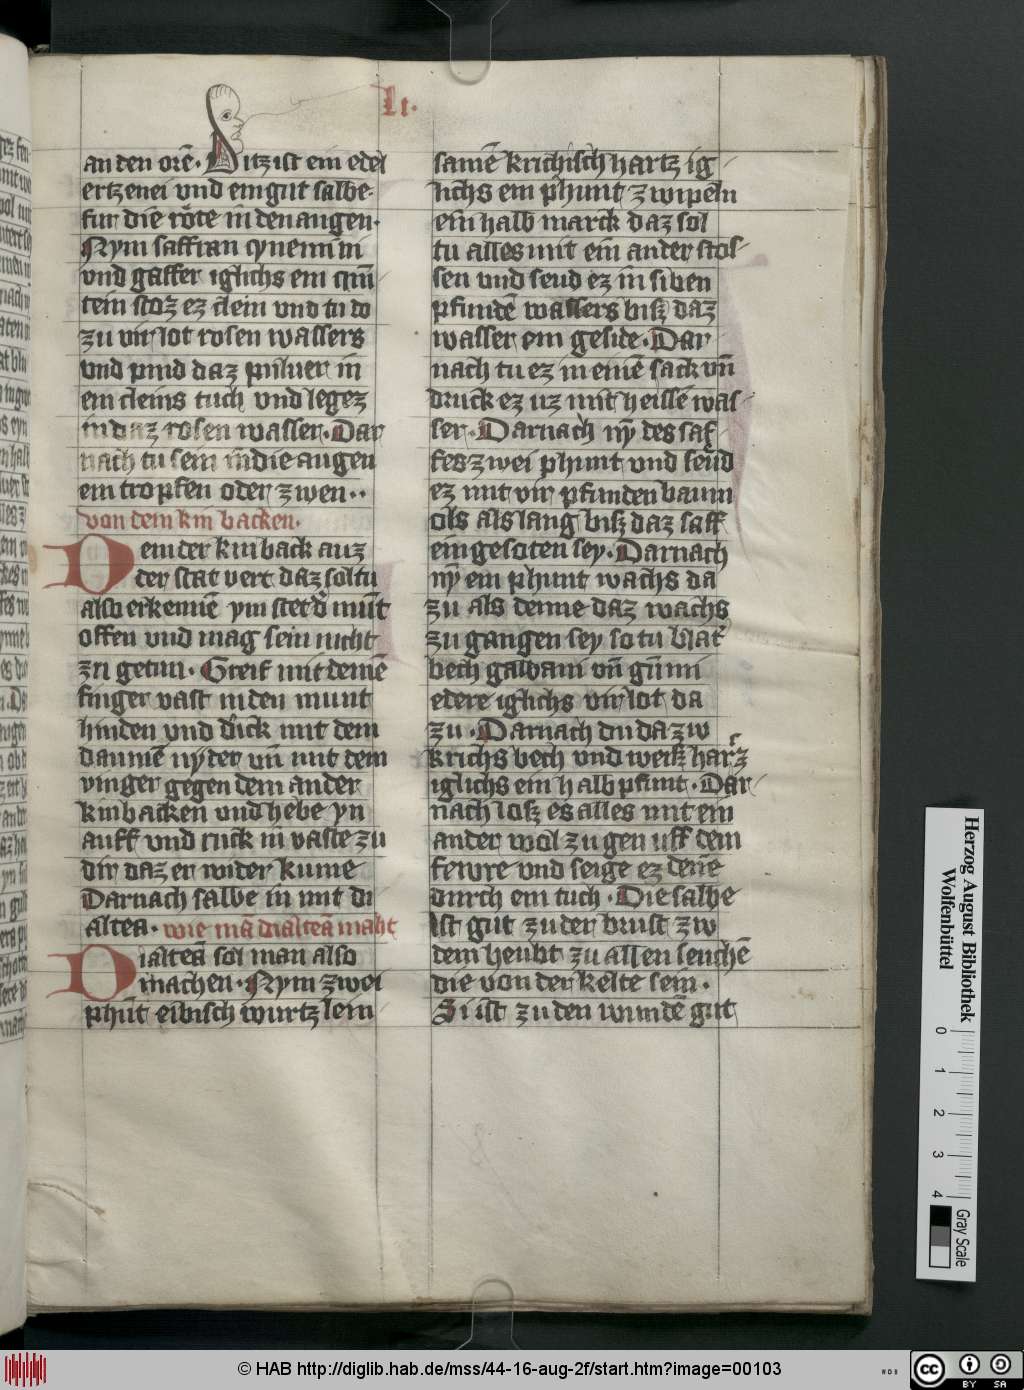 li.
an den orē. Ditz ist ein edel
ertzenei vnd ein gut salbe
fur die röte in den augen.
Nym saffran
vnd gaffer iglichs ein
tein stoz ez clein vnd tu do
zu vir lot rosen wassers
vnd pind daz puluer in
ein cleins tuch vnd legez
in daz rosen wasser. Dar
nach tu sein in die augen
ein tropfen oder zwen..
von dem kin backen.
Dem der kinback auz
der stat vert daz soltu
also erkennē ym stet d̓ mūt
offen vnd mag sein nicht
zu getun. Greif mit deinē
finger vast in den munt
hinden vnd druck mit dem
daumē nyder vn̄ mit dem
vinger gegen dem ander
kinbacken vnd hebe yn
auff vnd ruck in vaste zu
dir daz er wider kume
Darnach salbe in mit di
altea. wie mā dialteā maht
Dialteā sol man also
machen. Nym zwei
phūt eibisch wurtz lein
samē krichisch hartz ig
lichs ein phunt zwipeln
ein halb marck daz sol
tu alles mit ein ander stos-
sen vnd seud ez in siben
pfundē wassers bisz daz
wasser ein geside. Dar
nach tu ez in einē sack vn̄
druck ez uz mit heissē was-
ser. Darnach ny̅ des saf-
fes zwei phunt vnd seud
ez mit vir pfunden baum
ols als lang bisz daz saff
ein gesoten sey. Darnach
ny̅ ein phunt wachs da
zu als denne daz wachs
zu gangen sey so tu
bech galbani vn̄ gūmi
edere iglichs vir lot da
zu. Darnach
krichs bech vnd weisz harz
iglichs ein halb pfunt. Dar
nach losz es alles mit ein
ander wol zu gen uff dem
fewre vnd seige ez
durch ein tuch. Die salbe
ist gut zu der brust zw
dem heubt zu allen seuchē
die von der kelte sein.
Si ist zu den wundē gut
Herzog August Bibliothek
Wolfenbüttel
0 1 2 3 4
Gray Scale
© HAB http://diglib.hab.de/mss/44-16-aug-2f/start.htm?image=00103
cc BY SA